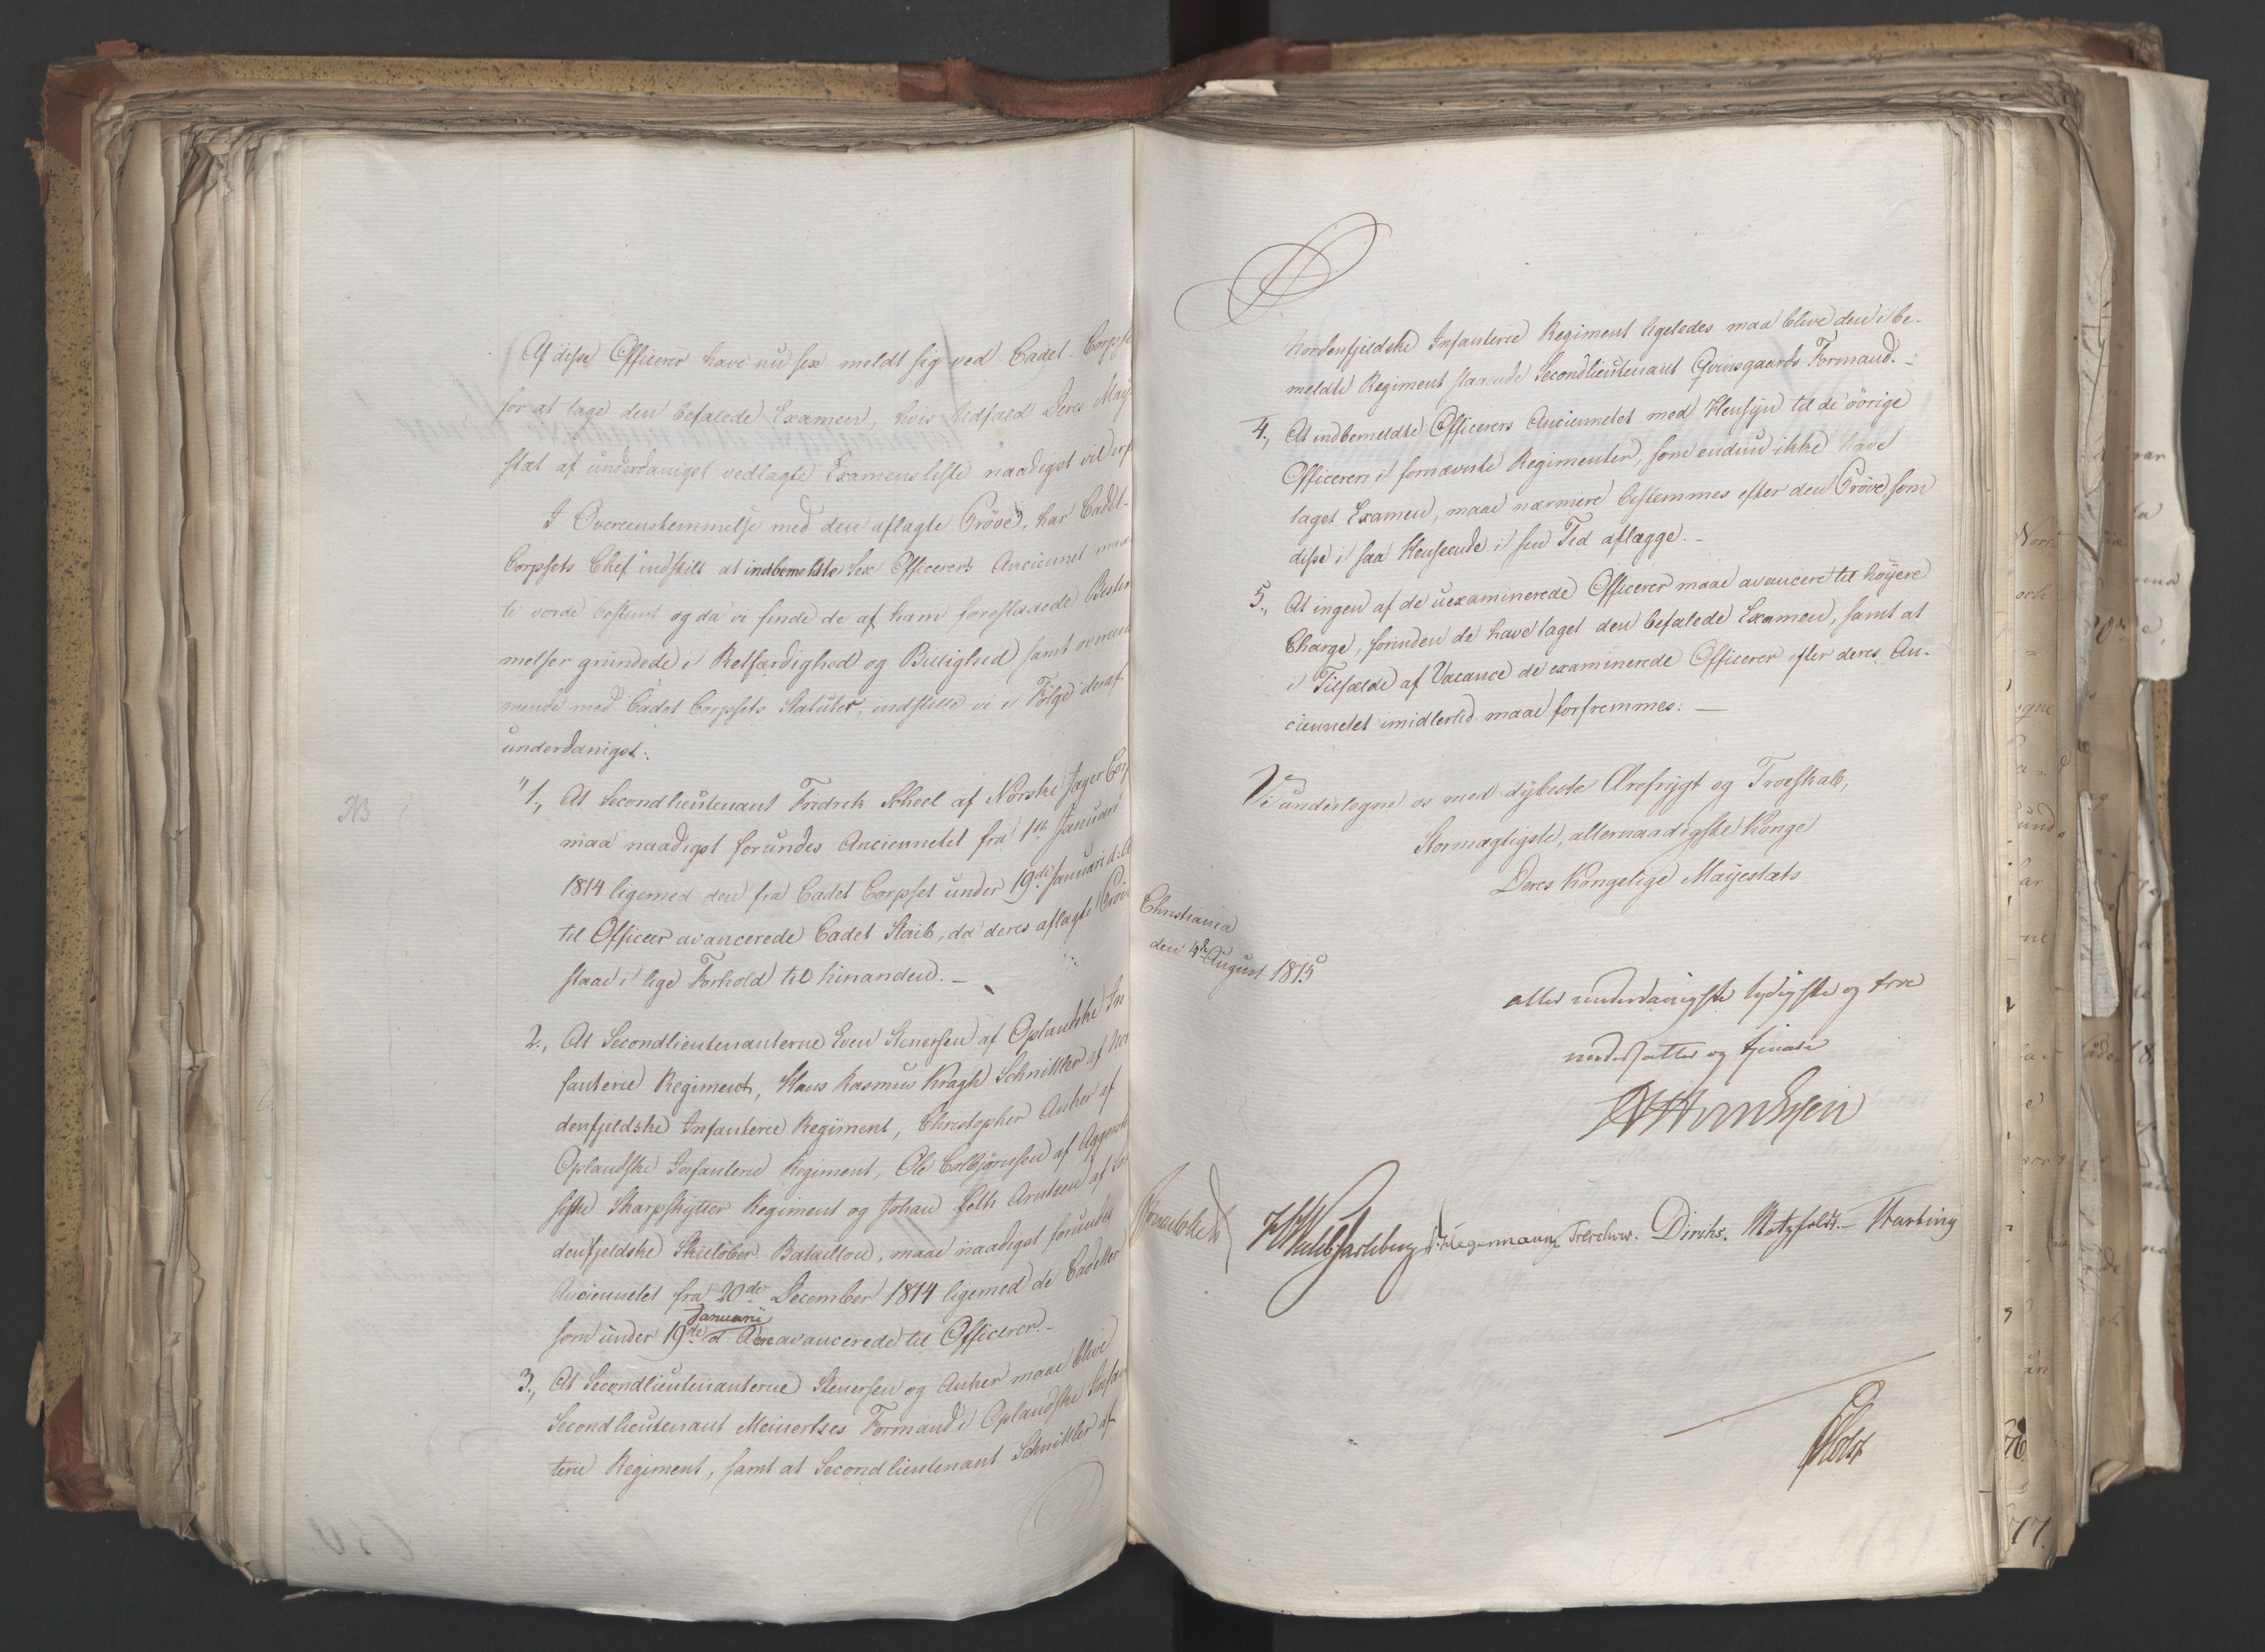 Af disse Officerer have nu sex meldt sig ved Cadet-Corpset
for at tage den befalede Examen, hvis Udfald Deres Maje-
stæt af underdanigst vedlagte Examensliste naadigst vil erf
I Overeensstemmelse med den aflagte Prøve, har Cadet-
Corpsets Chef indstilt at indbemeldte sex Officerers Anciennet maa-
te vorde bestemt og da vi finde de af ham foreslaaede Bestem
melser grundede i Retfærdighed og Billighed samt overeens
mende med Cadet Corpsets Statuter, indstille vi i Følge deraf
underdanigst:
"1., At Secondlieutenant Fredrik Scheel af Norske Jæger Corps
maa naadigst forundes Anciennetet fra 1ste Januari
1814 ligemed den fra Cadet Corpset under 19de Januari d: A
til Officer avancerede Cadet Staib, da deres aflagte Prøve
staae i lige Forhold til hinanden. _
NB
2., At Secondlieutenanterne Even Stenersen af Oplandske In
fanterie Regiment, Hans Rasmus Kragh Schnitler af Nor
denfjeldske Infanterie Regiment, Christopher Anker af
Oplandske Infanterie Regiment, Ole Colbjørnsen af Aggershu
siske Skarpskytter Regiment og Johan Seth Arntzen af
denfjeldske Skieløber Bataillon, maae naadigst forundes
Anciennetet fra 20de December 1814 ligemed de Cadetter
Januarii
som under 19de d. A. ere avancerede til Officerer. _
3., At Secondlieutenanterne Stenersen og Anker maae blive
Secondlieutenant Meinertzes Formænd i Oplandske Infan
terie Regiment, samt at Secondlieutenant Schnitler af
Nordenfjeldske Infanterie Regiment ligeledes maa blive den i be-
meldte Regiment staaende Secondlieutenant Qvinsgaards Formand. _
4., At indbemeldte Officerers Anciennetet med Hensyn til de øvrige
Officerer i fornævnte Regimenter, som endnu ikke have
taget Examen, maae nærmere bestemmes efter den Prøve, som
disse i saa Henseende i sin Tid aflægge. _
5., At ingen af de uexaminerede Officerer maae avancere til høyere
Charge, førinden de have taget den befalede Examen, samt at
i Tilfælde af Vacance de examinerede Officerer efter deres An-
ciennetet imidlertid maae forfremmes: _
Vi undertegne os med dybeste Ærefrygt og Troeskab,
Stormægtigste, allernaadigste Konge
Deres Kongelige Mayestæts
Christiania
den 4de August 1815
aller underdanigste lydigste og troe
undersatter og tjenere
Sommerhielm HHWedel Jarlsberg D: Hegermann Treschow. Diriks. Motzfeldt. Harting
Holst